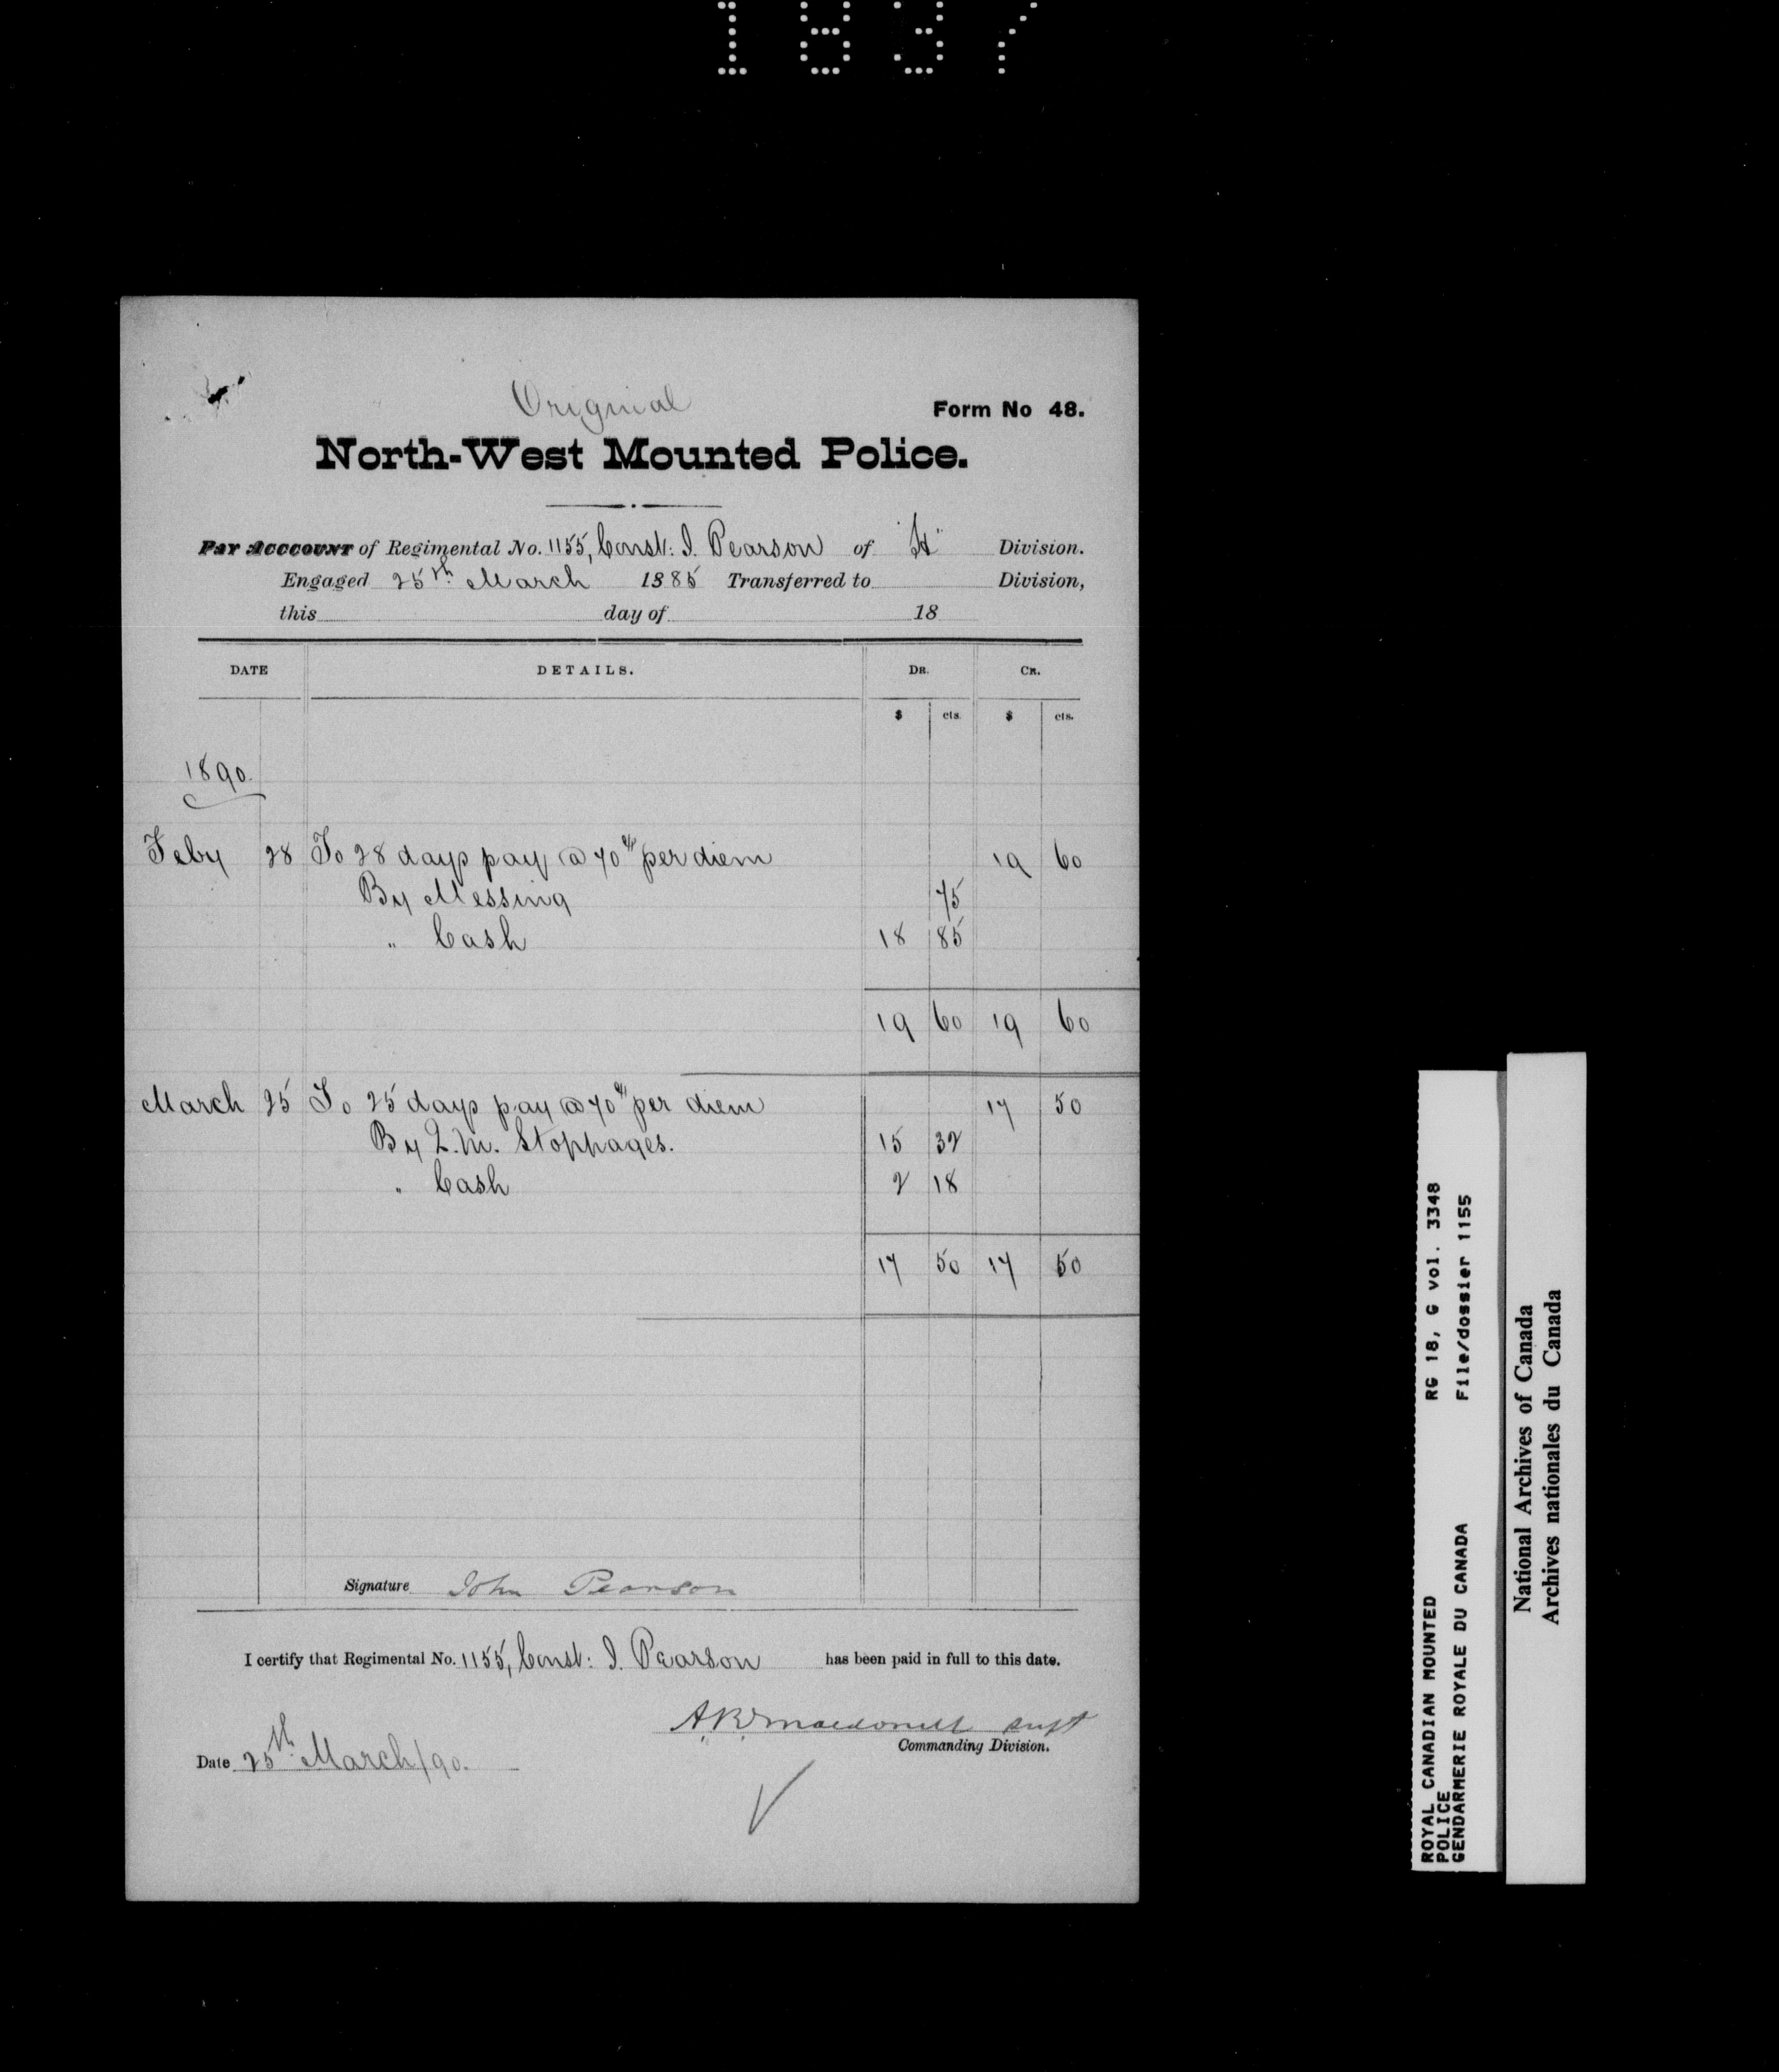 1837
Original
Form No 48.
North-West Mounted Police.
Pay Acccount of Regimental No. 1155, Const: J. Pearson of "H" Division.
Engaged 25th March 1885 Transferred to Division,
this day of 18
DATE DETAILS. DR. CR.
$ cts. $ cts.
1890.
Feby 28 To 28 days pay @ 70cts per diem 19 60
By Messing 75
" Cash 18 85
19 60 19 60
March 25 To 25 days pay @ 70cts per diem 17 50
By Q.M. Stoppages. 15 32
" Cash 2 18
17 50 17 50
Signature John Pearson
I certify that Regimental No. 1155, Const: J. Pearson has been paid in full to this date.
A.R. Macdonell Supt
Commanding Division.
Date 25th March/90.
ROYAL CANADIAN MOUNTED RG 18, G vol. 3348
POLICE
GENDARMERIE ROYALE DU CANADA File/dossier 1155
National Archives of Canada
Archives nationales du Canada